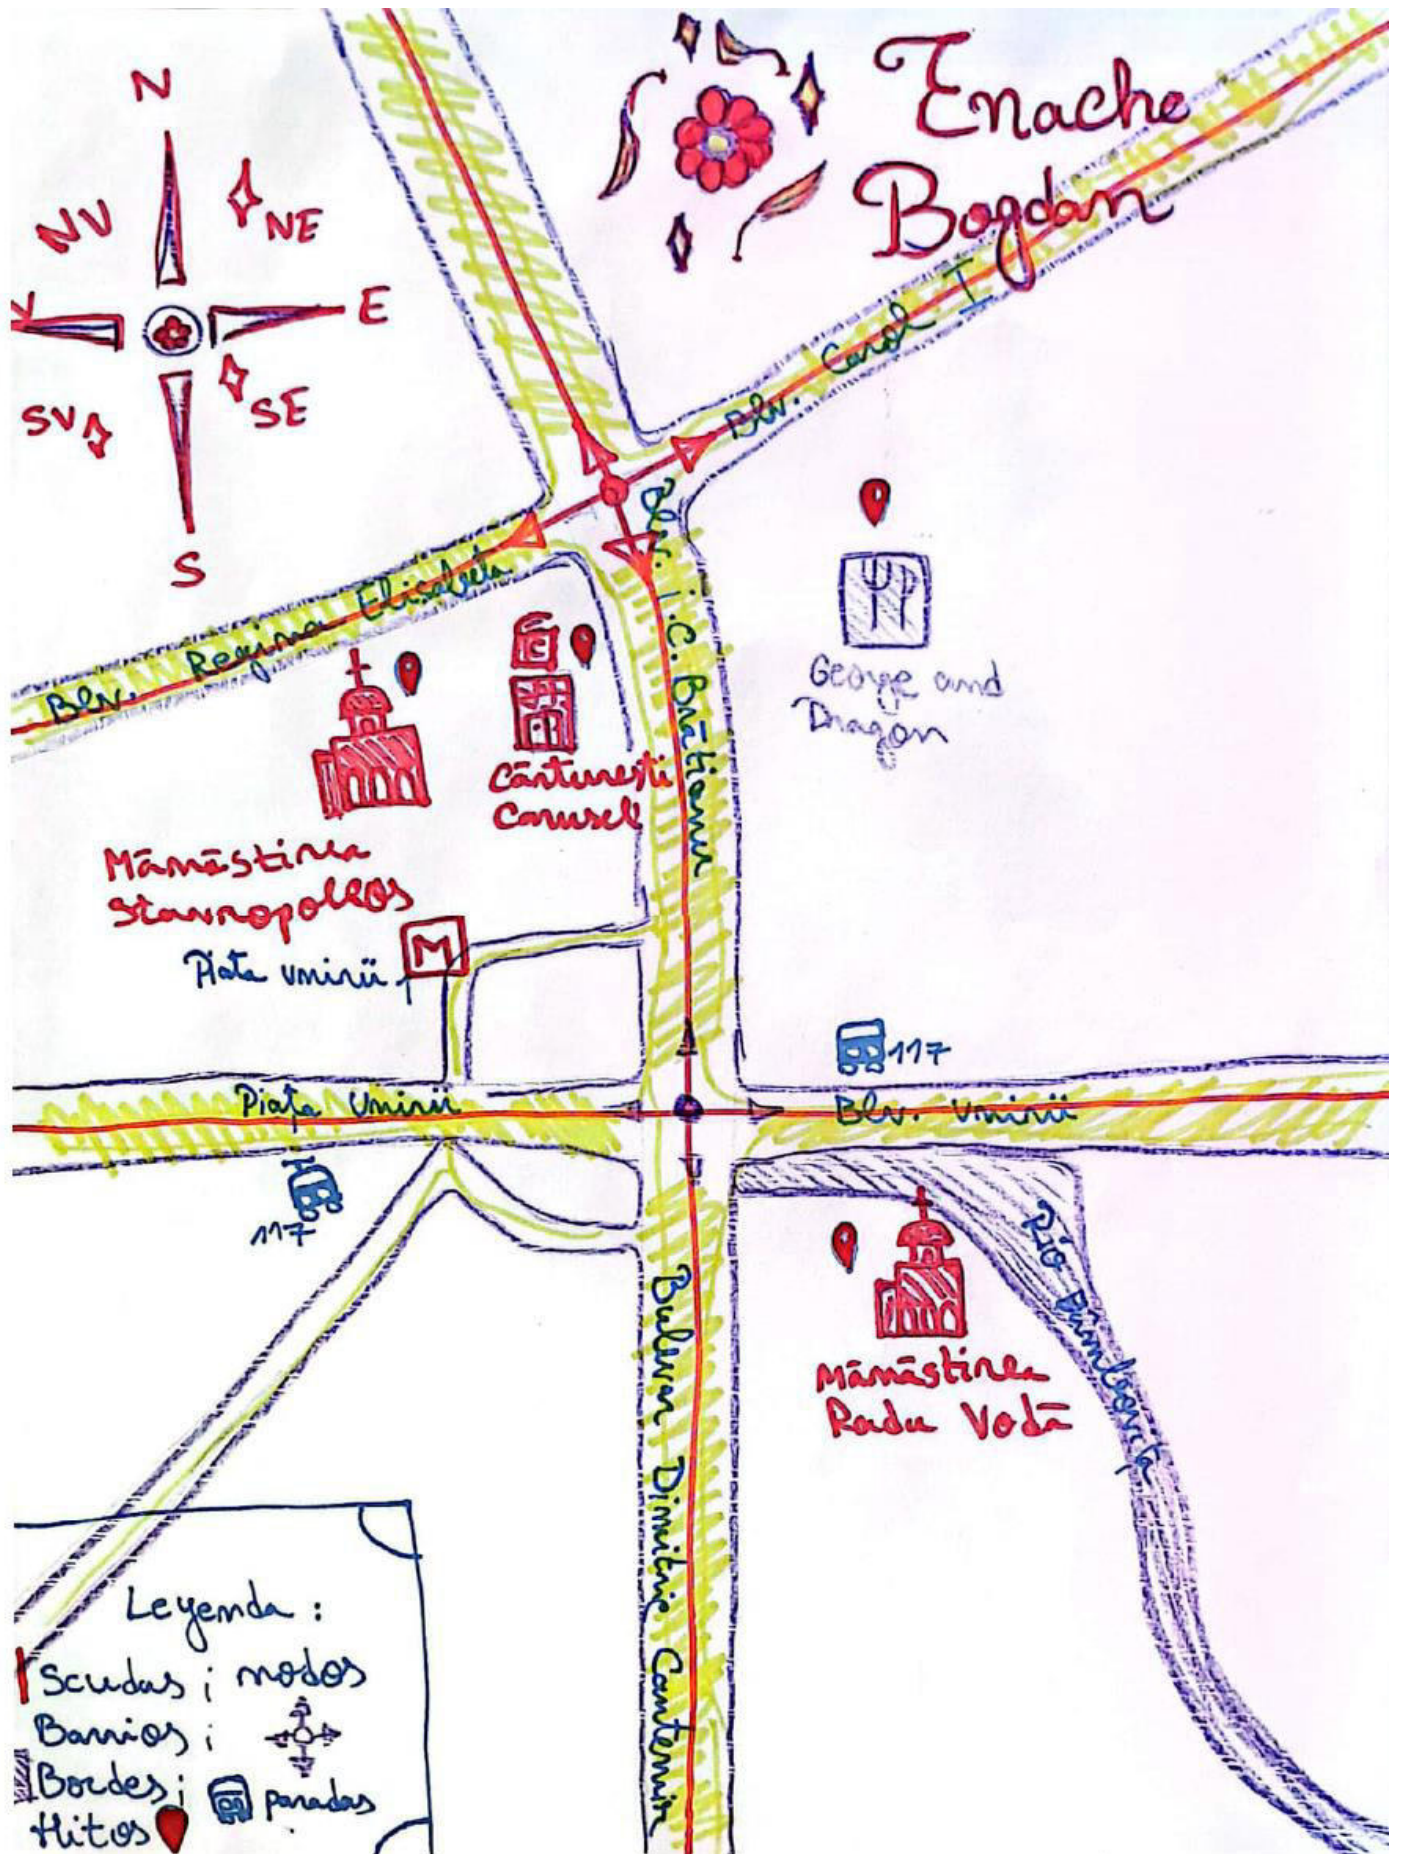 Enache
Bogdan
N
NV
NE
V
E
SV
SE
S
Blv. Carol I
Blv. I.C. Brătianu
Blv. Regina Elisabeta
C
George and
Dragon
Cărturești
Carusel
Mănăstirea
Stavropoleos
M
Piata unirii
117
Piața Unirii
Blv. Unirii
117
Río Dâmbovița
Mănăstirea
Radu Vodă
Bulevar Dimitrie Cantemir
Leyenda :
Scudas ; nodos
Barrios ;
Bordes ;
paradas
Hitos